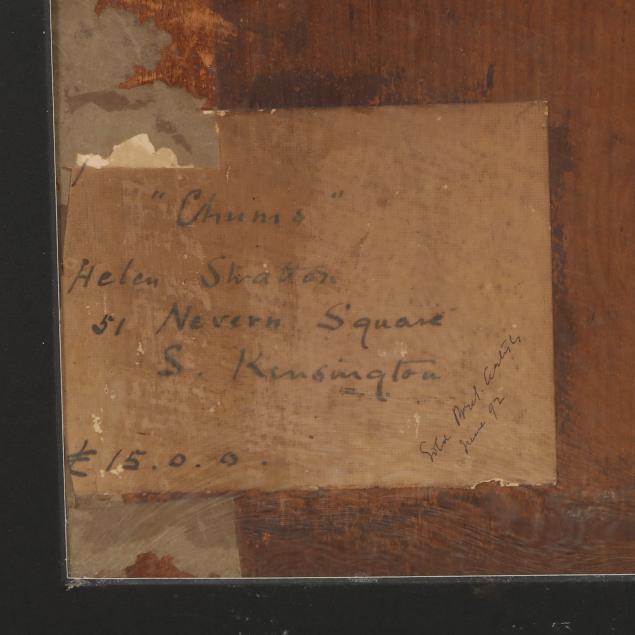 "Chums"
Helen Stratton
51 Nevern Square
S. Kensington
£15.0.0.
Sold Brit. Artists
June 92